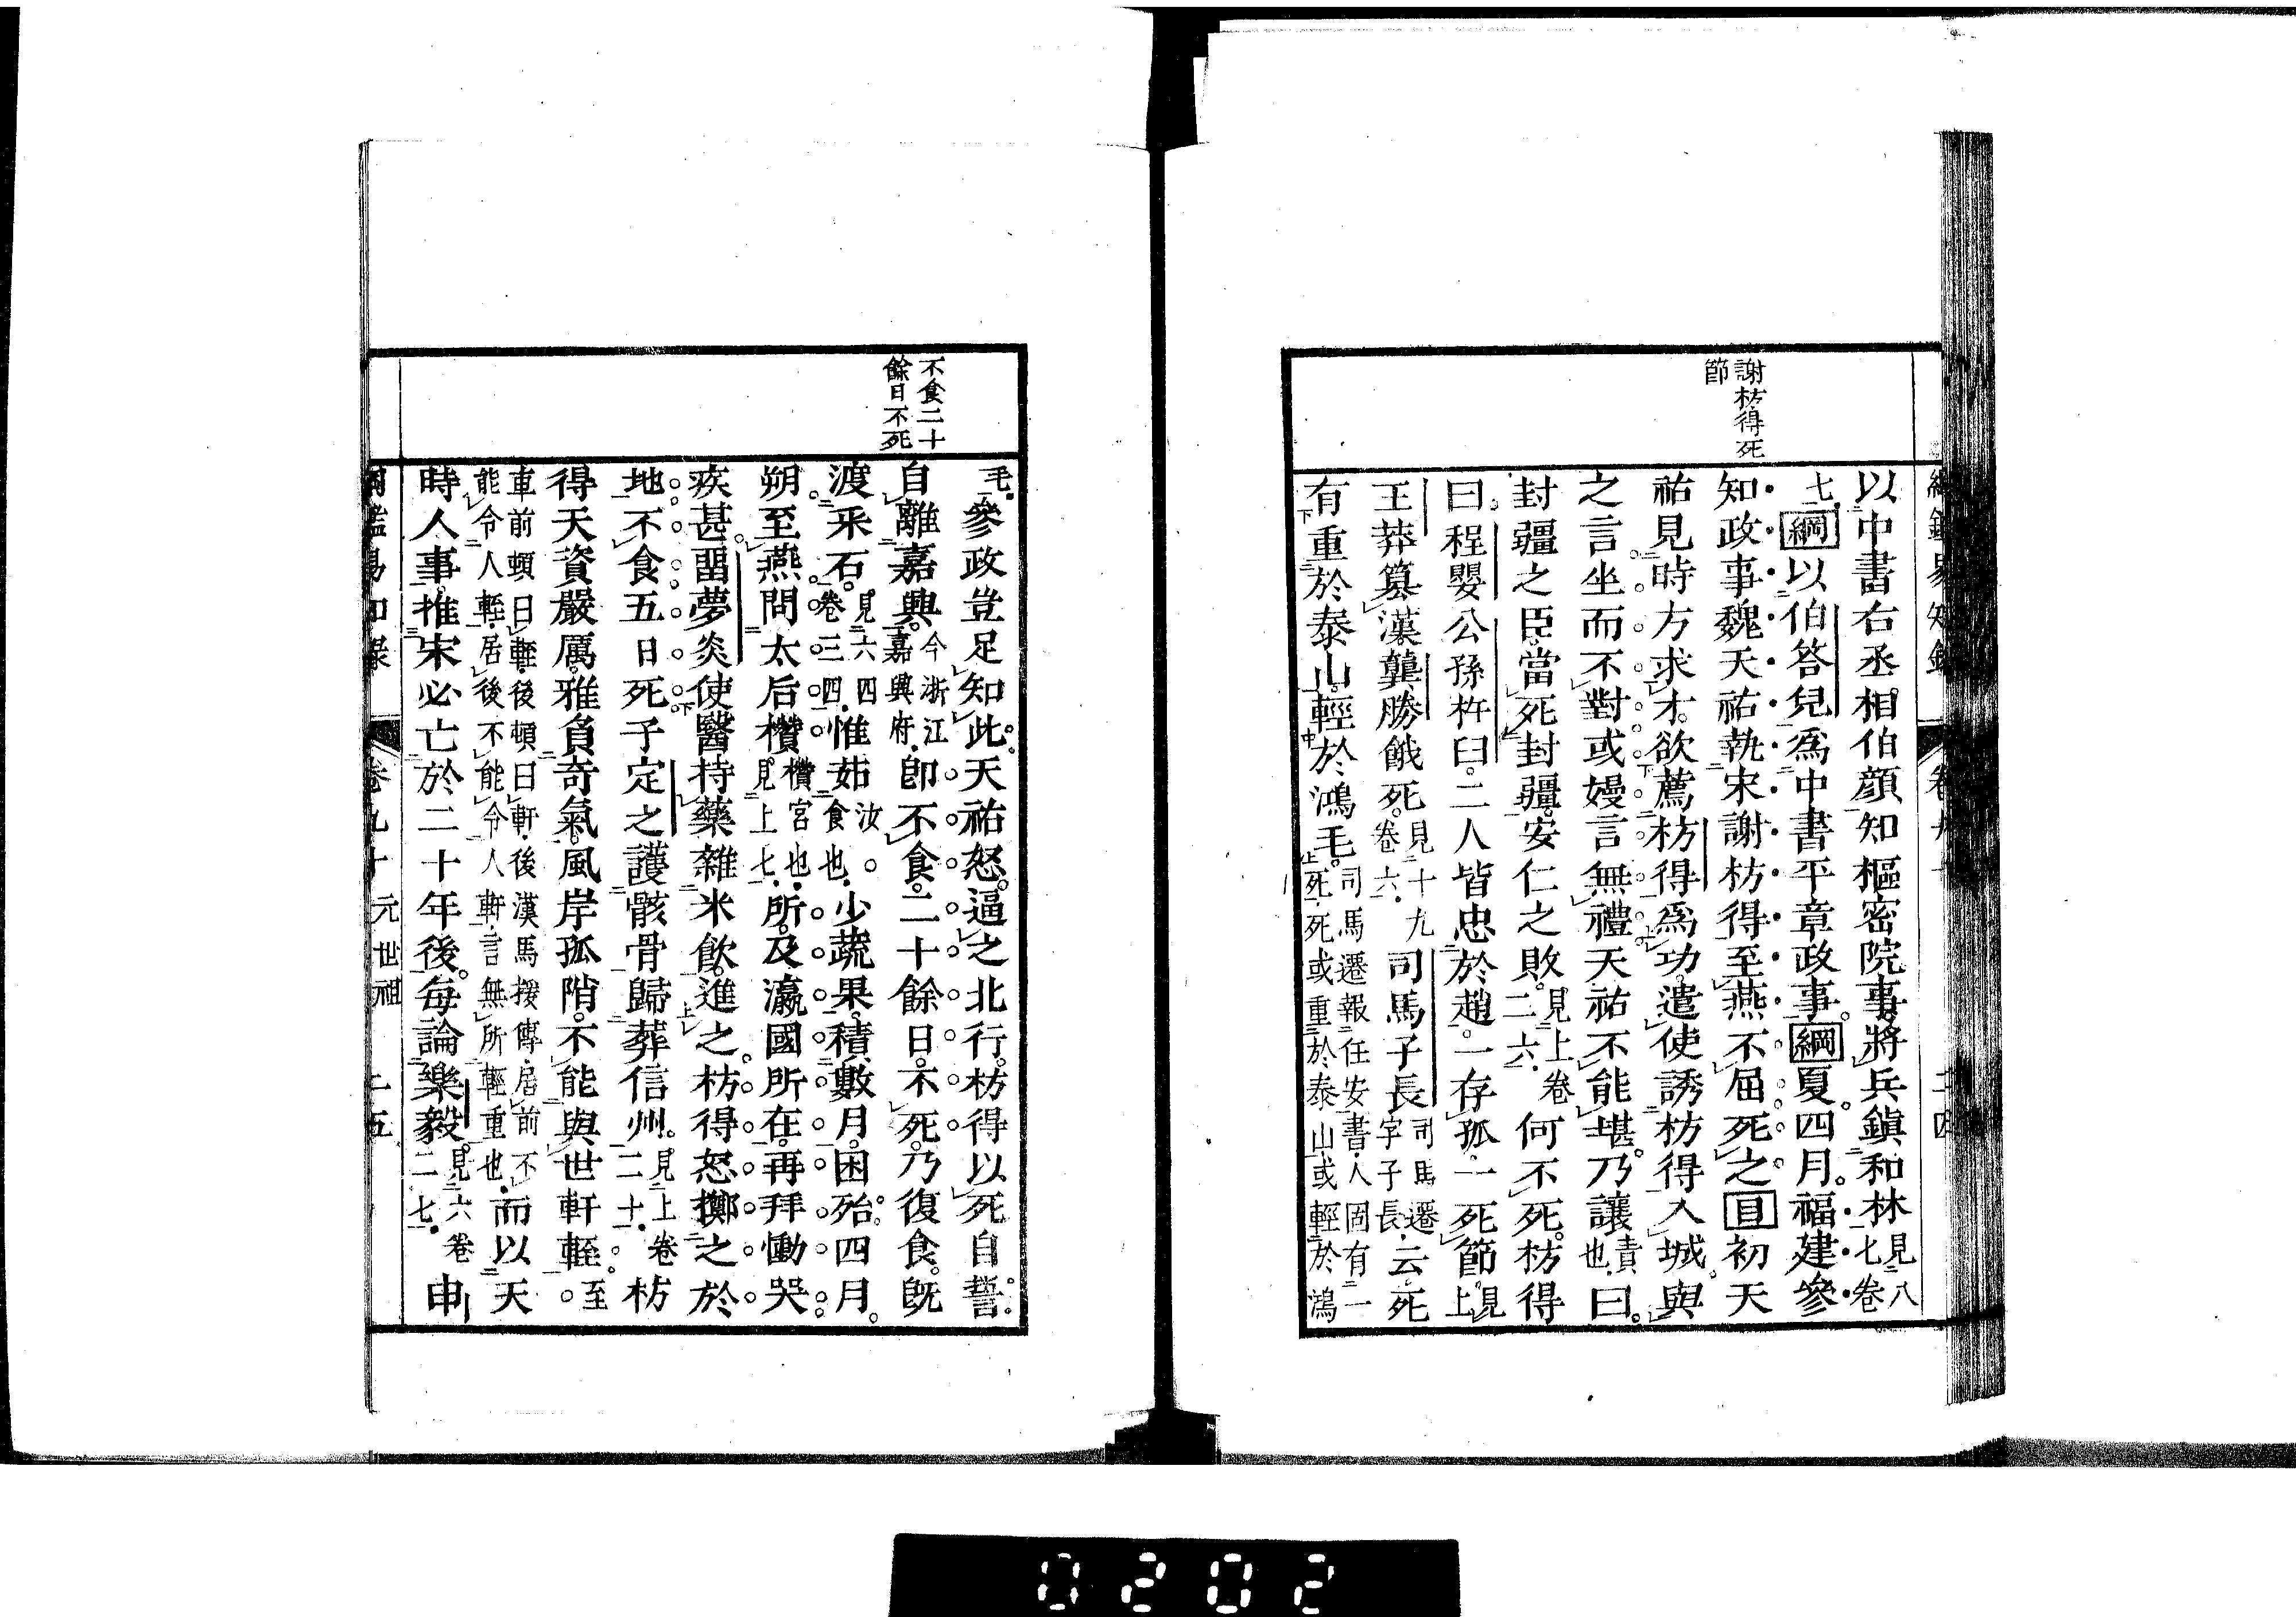 謝枋得死
節
以中書右丞相伯顔知樞密院事將兵鎭和林見八七卷
七綱以伯答兒爲中書平章政事綱夏四月福建參
知政事魏天祐執宋謝枋得至燕不屈死之目初天
祐見時方求才欲薦枋得爲功遣使誘枋得入城與
之言坐而不對或嫚言無禮天祐不能堪乃讓責也曰
封疆之臣當死封疆安仁之敗見上卷二六何不死枋得
曰程嬰公孫杵臼二人皆忠於趙一存孤一死節見上
王莽簒漢龔勝餓死見十九卷六司馬子長司馬遷字子長云死
有重於泰山輕於鴻毛司馬遷報任安書人固有一死死或重於泰山或輕於鴻
不食二十
餘日不死
毛參政豈足知此天祐怒逼之北行枋得以死自誓
自離嘉興今浙江嘉興府卽不食二十餘日不死乃復食旣
渡采石見六四卷三四惟茹汝食也少蔬果積數月困殆四月
朔至燕問太后欑欑宮也見上七所及瀛國所在再拜慟哭
疾甚畱夢炎使醫持藥雜米飮進之枋得怒擲之於
地不食五日死子定之護骸骨歸葬信州見上卷二十枋
得天資嚴厲雅負奇氣風岸孤陗不能與世軒輊至
車前頓曰輊後頓曰軒後漢馬援傳居前不能令人輊居後不能令人軒言無所輕重也而以天
時人事推宋必亡於二十年後每論樂毅見六卷二七申
卷九十 元世祖 二五